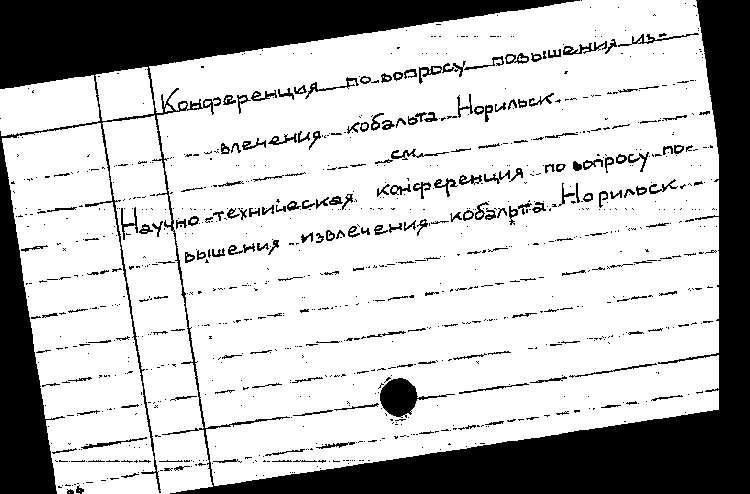 Конференция по вопросу повышения из-
влечения кобальта. Норильск.
см.
Научно-техническая конференция по вопросу по-
вышения извлечения кобальта. Норильск.